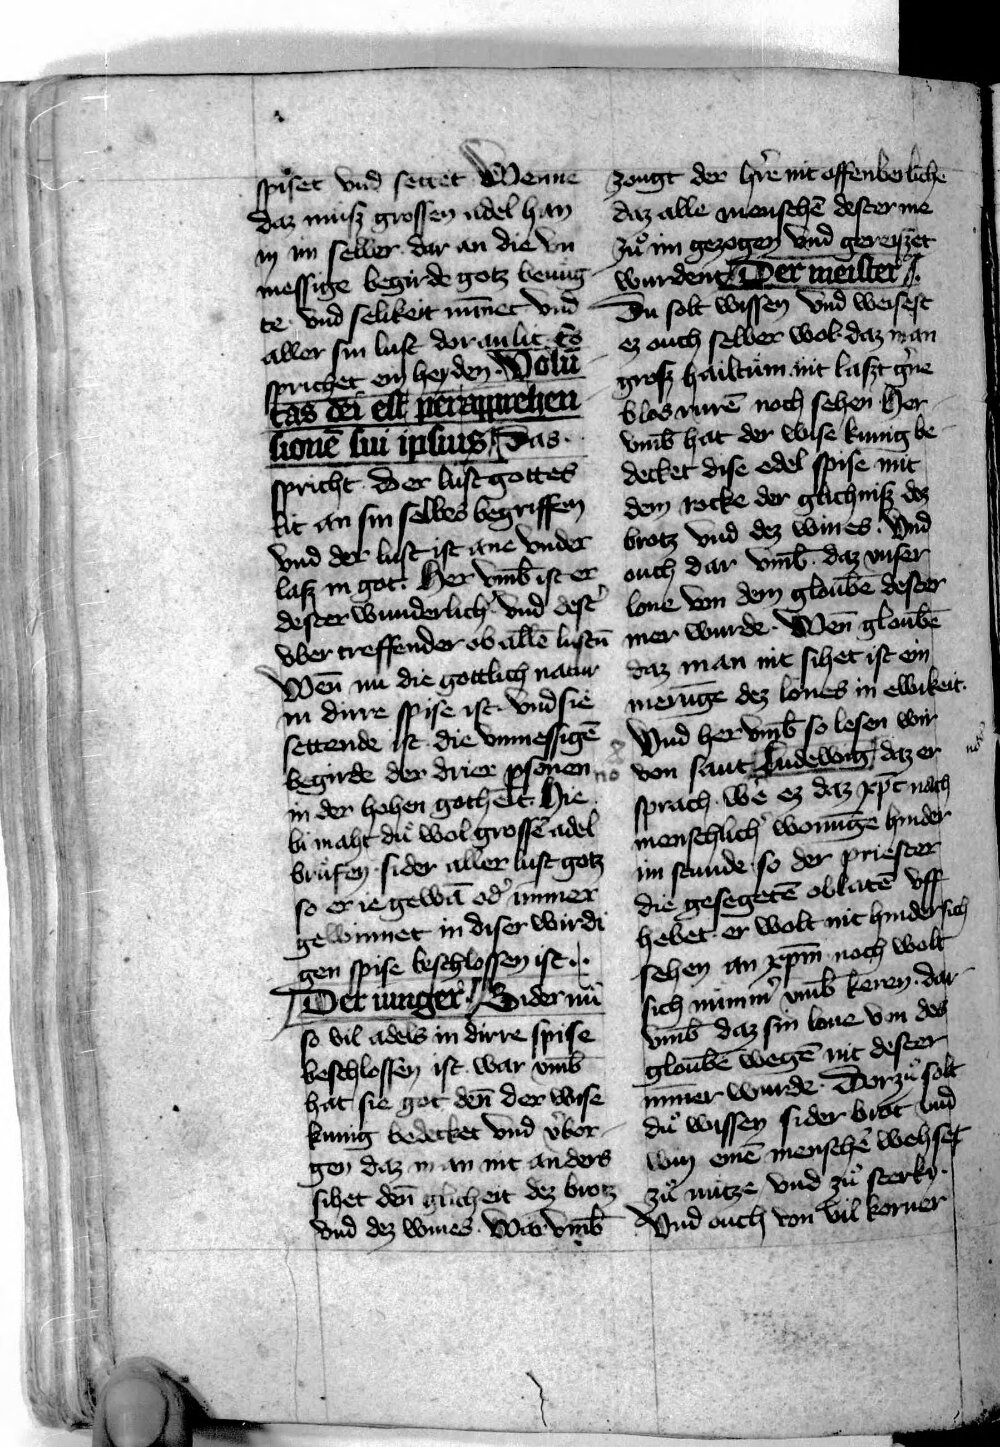 spiset vnd settet Wenne
daz můsz grossen adel han
in im selber · dar an die vn
messige begirde gotz benůg
te · vnd selikeit nim̄et vnd
aller sin lust dor an lit · Es
sprichet ein heyden · Volū
tas dei est
sionē sui ipsius Das ·
spricht · Der lust gottes
lit an sin selbes begriffen
vnd der lust ist ane vnder
lasz in got · Her vmb̄ ist er
dester wunderlich' vnd dest'
vber treffender ob allē lustū
Wen̄ nu die gottlich natur
in dirre spise ist · vnd sie
settende ist die vnmessigē
begirde der drier psonen
in der hohen gotheit · Hie
bi maht dů wol grossē adel
brůfen · sider aller lust gotz
so er ie gewā od' immer
gewinnet in diser wirdi
gen spise beschlossen ist ·
Der iunger · Sider nů
so vil adels in dirre spise
beschlossen ist · war vmb̄
hat sie got den̄ der wise
kunig bedecket vnd v'bor
gen daz man nit anders
sihet den̄ glicheit dez brotz
vnd dez wines · War vmb̄
zougt der h're nit offenberliche
daz alle menschē dester me
zů im gezogen vnd gereiszet
wurdent Der meister
Du solt wissen vnd weisest
ez ouch selber wol · daz man
grosz hailtům nit laszt g'ne
blos rurē noch sehen Her
vmb̄ hat der wise kunig be
decket dise edel spise mit
dem rocke der glichnisz dez
brotz vnd dez wines · Vnd
ouch dar vmb̄ · daz vnser
lone von dem gloubē dester
mer wurde · Wen̄ gloubē
daz man nit sihet ist ein
merūge dez lones in ewikeit ·
Vnd her vmb̄ so lesen wir
von sant Ludewig daz er
sprach · wē ez daz xp̄c nach
menschlich' wonūge hinder
im stunde · so der priester
die gesegetē oblatē vff
hebet · er wolt nit hinder sich
sehen an xp̄m noch wolt
sich nimm' vmb̄ keren · dar
vmb̄ daz sin lone von des
gloubē wegē nit dester
minner wurde · Dorzů solt
dů wissen sider brot vnd
win einē menschē wehset
zů nütze vnd zů sterki ·
Vnd ouch von vil korner